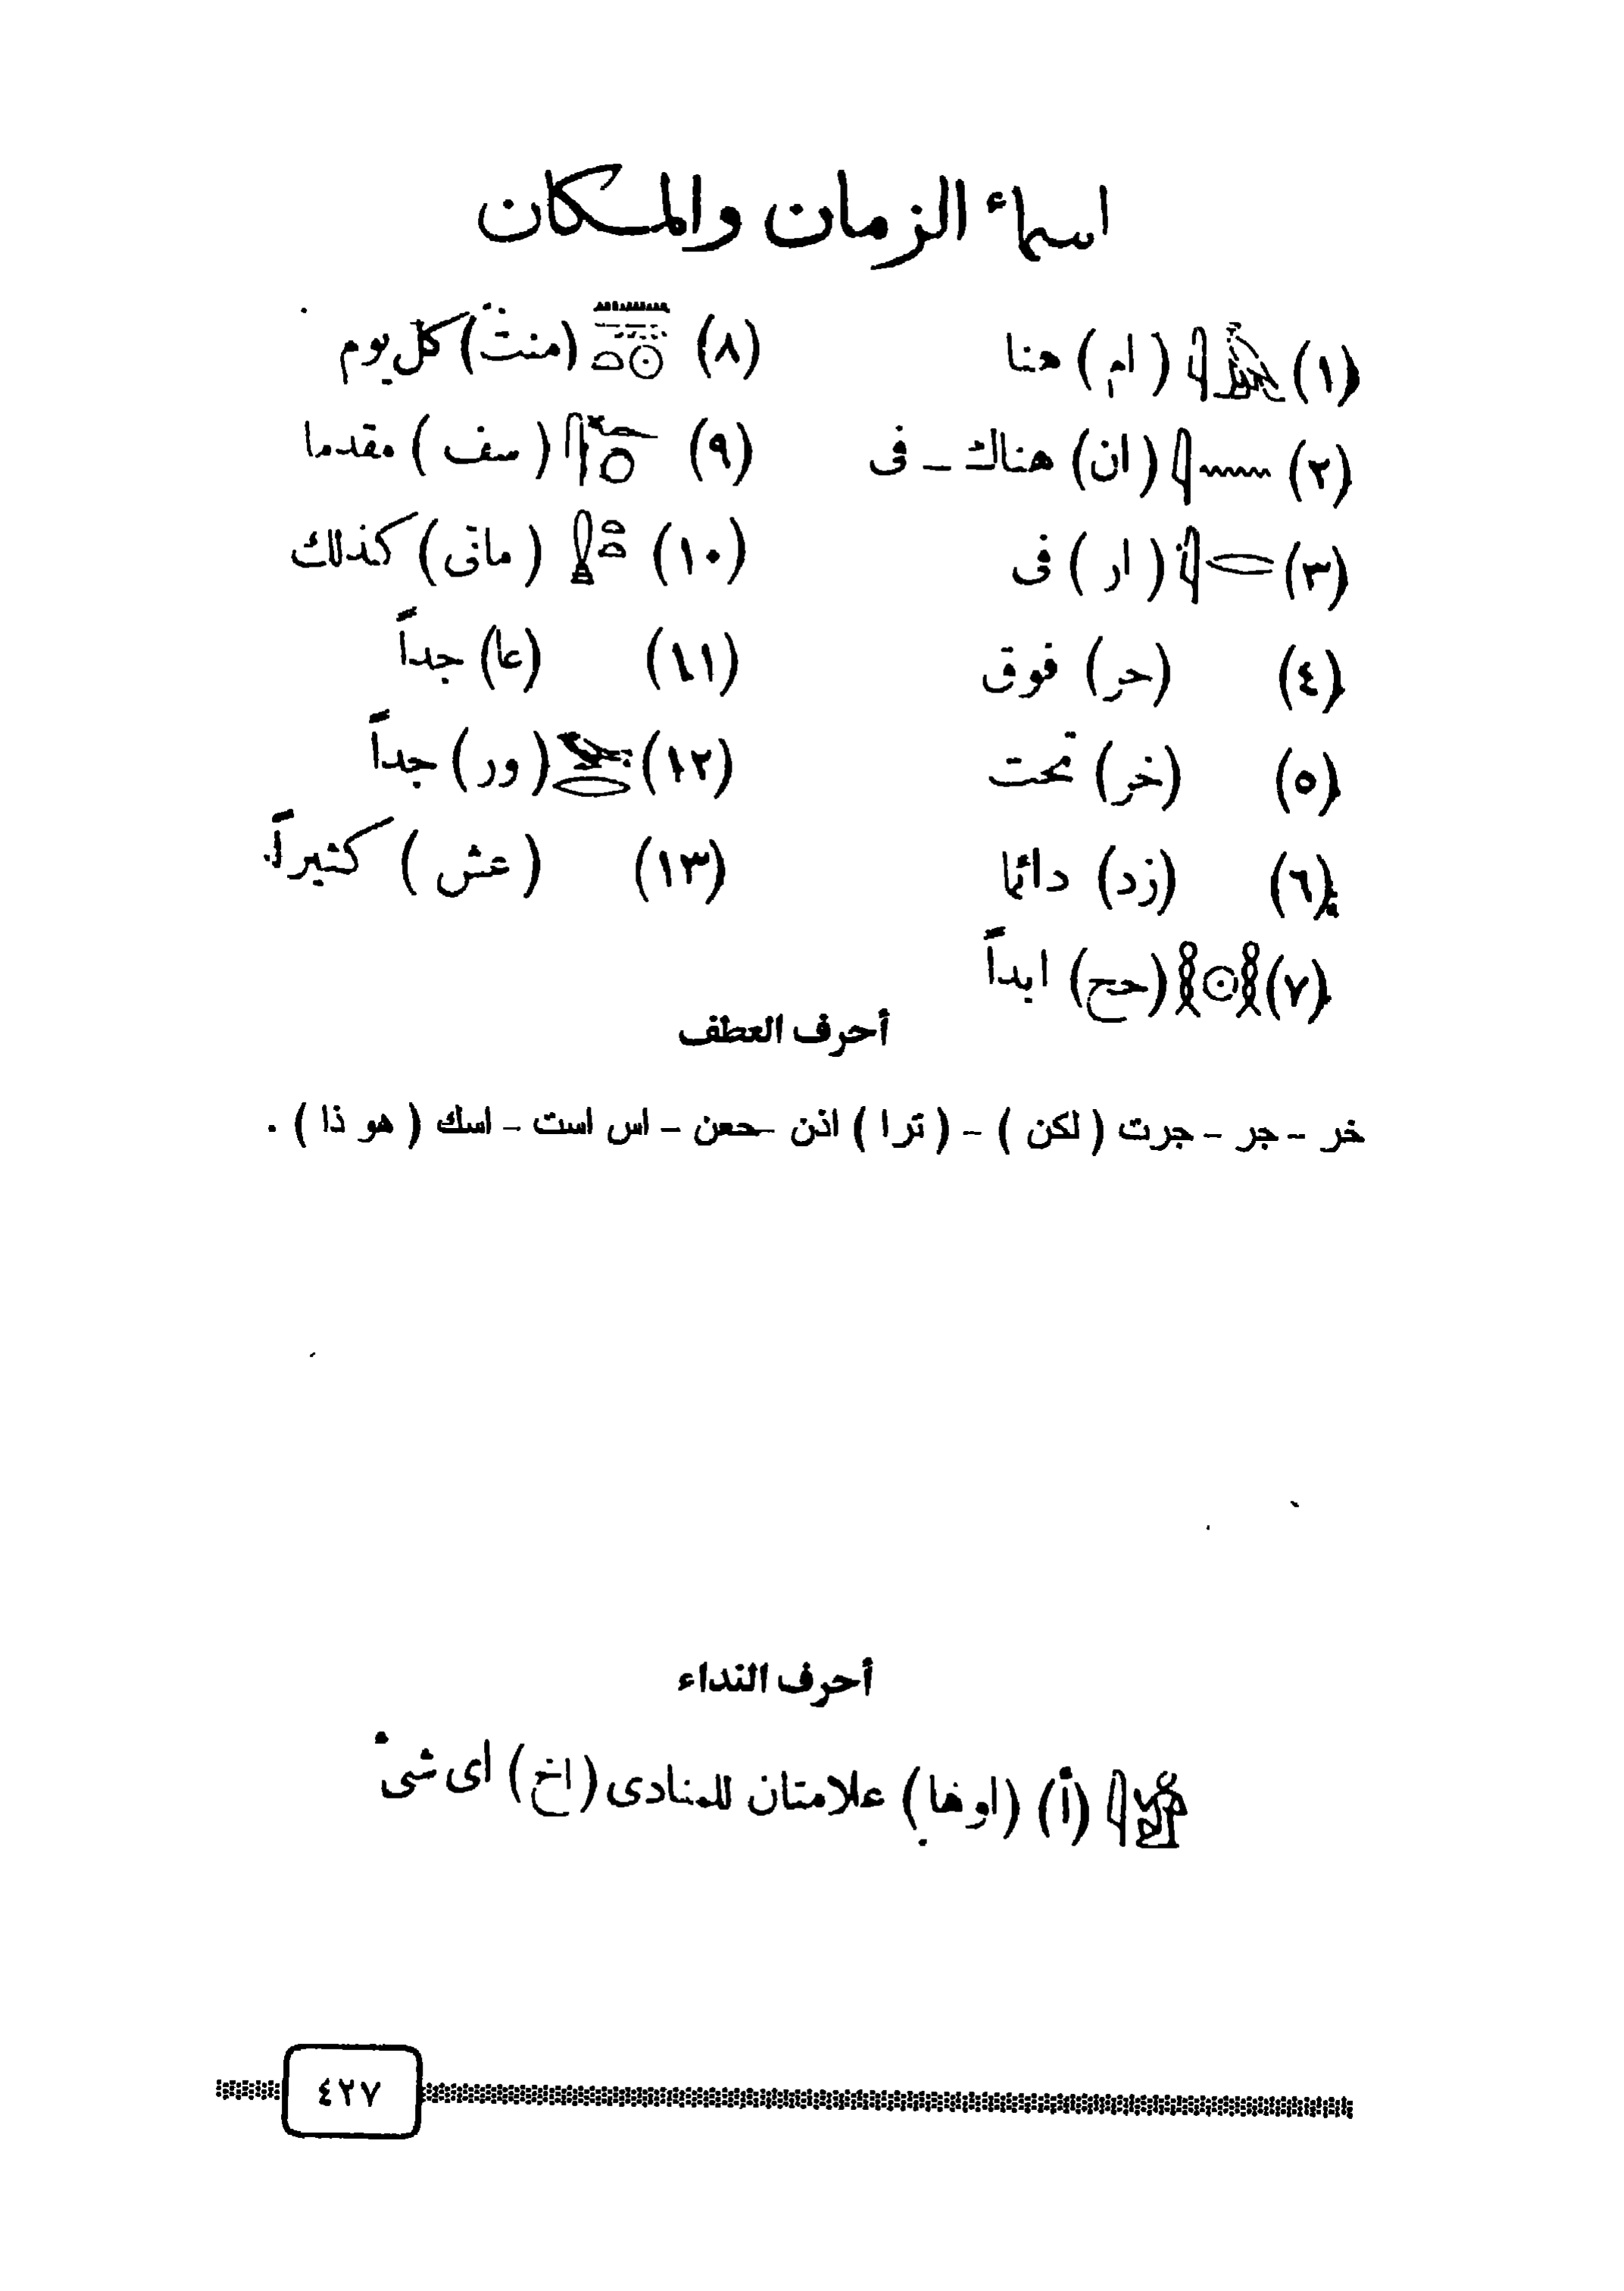 اسماء الزمان والمكان
(١) (ام) هنا
(٢) (ان) هناك - فى
(٣) (ار) فى
(٤) (حر) فوق
(٥) (خر) تحت
(٦) (زد) دائما
(٧) (حح) ابداً
(٨) (منت) كل يوم
(٩) (سف) مقدما
(١٠) (ماتى) كذلك
(١١) (عا) جداً
(١٢) (ور) جداً
(١٣) (عش) كثيراً
أحرف العطف
خر - جر - جرت (لكن) - (ترا) اذن - حعن - اس است - اسك (هو ذا).
أحرف النداء
(أ) (اوها) علامتان للمنادى (اخ) اى شىء
٤٢٧